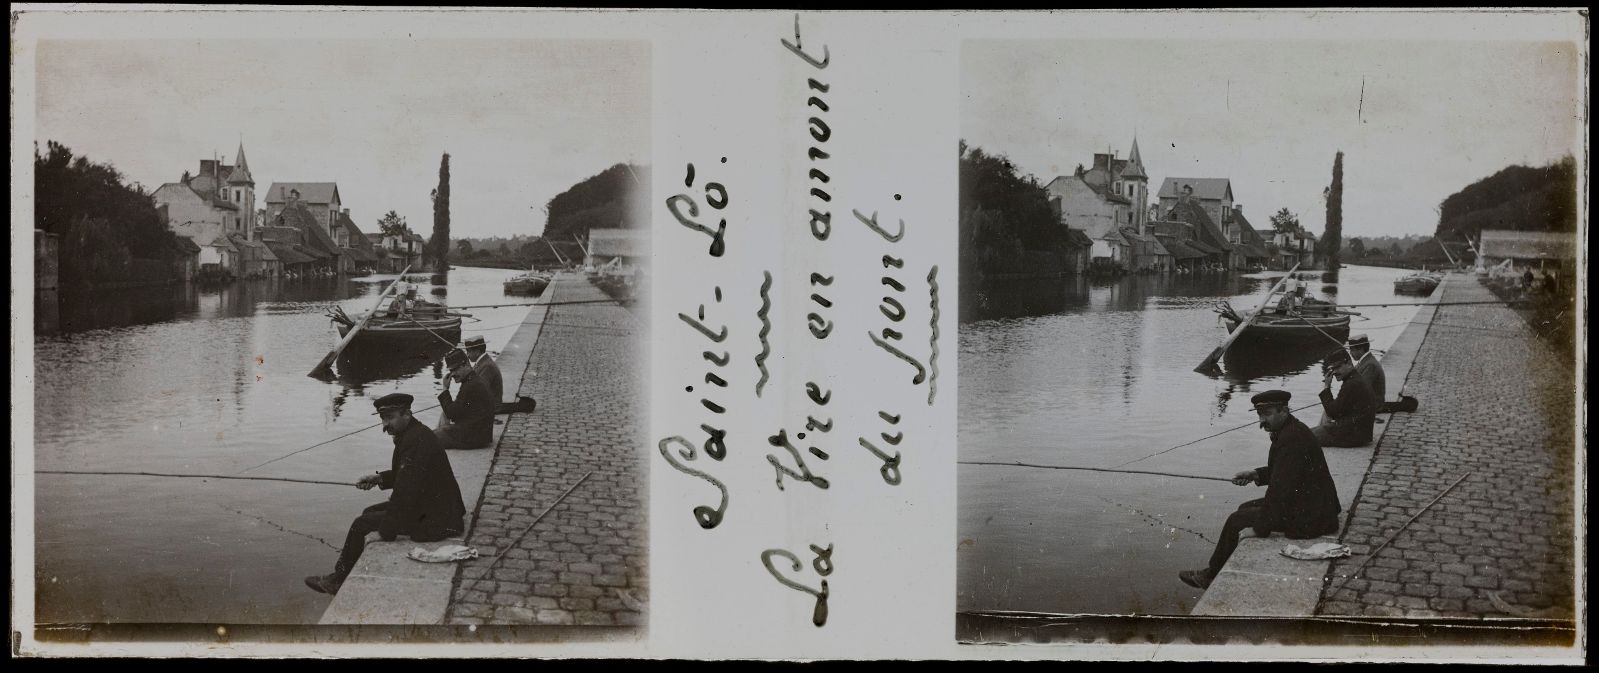 Saint-Lô.
La Vire en amont
du pont.